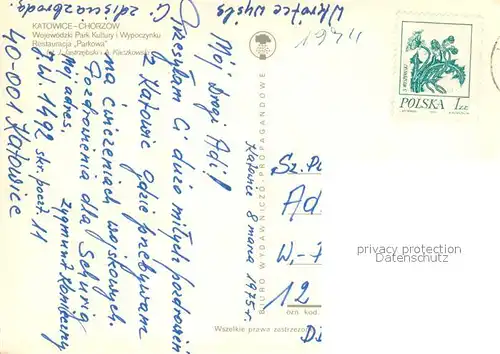 KATOWICE–CHORZÓW
Wojewódzki Park Kultury i Wypoczynku
Restauracja „Parkowa”
fot. J. Jastrzębski i A. Kaczkowski
Wkrótce wyślę
G. zdisiaobrody.
1974
Mój Drogi Adi!
Przesyłam Ci dużo miłych pozdrowień
z Katowic gdzie przebywam
na ćwiczeniach wojskowych.
Pozdrowienia dla
Mój adres.
Zygmunt
J.W. 1492 skr. poczt. 11
40-001 Katowice
Katowice 8 marca 1975 r.
BIURO WYDAWNICZO-PROPAGANDOWE
POLSKA 1 ZŁ
Sz. P
Ad
W.-
12
ozn kod.
D
Wszelkie prawa zastrzeżo
privacy protection
Datenschutz